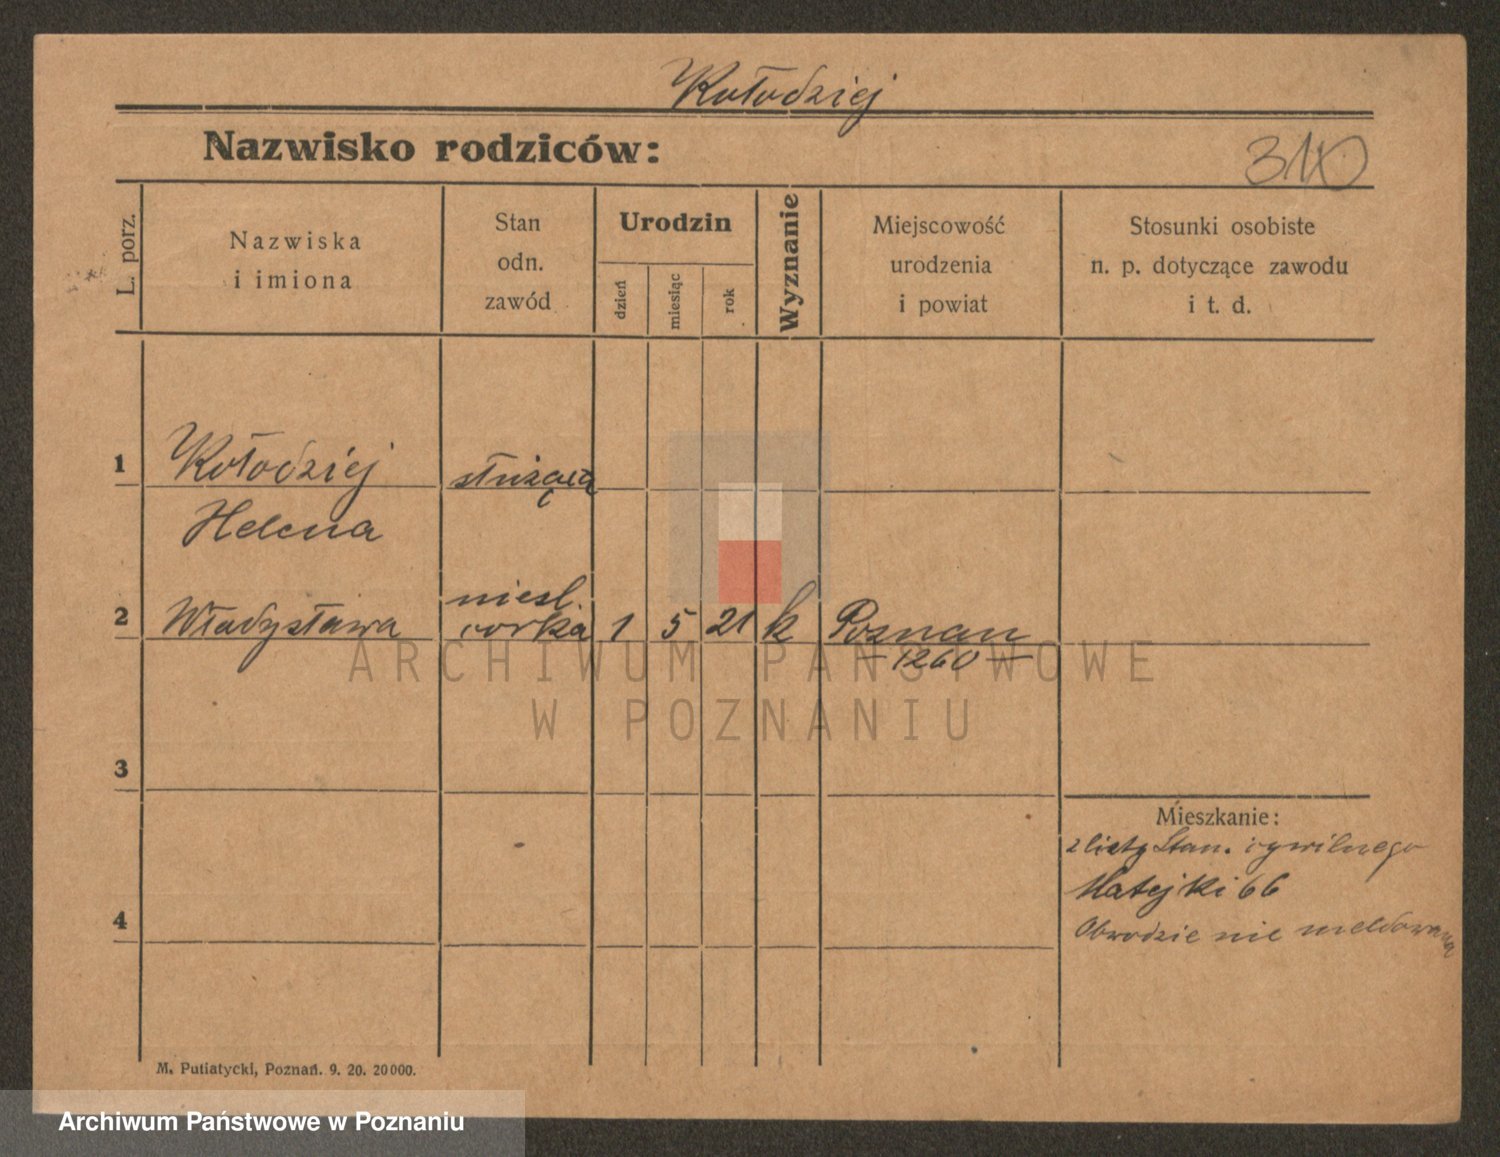 Kołodziej
Nazwisko rodziców:
310
L. porz.
Nazwiska
i imiona
Stan
odn.
zawód
Urodzin
dzień
miesiąc
rok
Wyznanie
Miejscowość
urodzenia
i powiat
Stosunki osobiste
n. p. dotyczące zawodu
i t. d.
1 Kołodziej służąca
Helena
niesl.
2 Władysława corka 1 5 21 k Poznan
— 1260 —
ARCHIWUM PAŃSTWOWE
W POZNANIU
3
Mieszkanie:
z listy Stan. cywilnego
Matejki 66
4
Obwodzie nie meldowana
M. Putiatycki, Poznań. 9. 20. 20000.
Archiwum Państwowe w Poznaniu